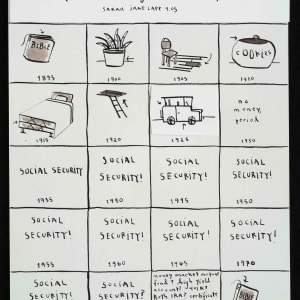 SARAH JANE LAPP 9.05
BIBLE
COOKIES
1895
1900
1905
1910
no
money,
period
1915
1920
1925
1930
SOCIAL SECURITY
SOCIAL
SECURITY!
SOCIAL
SECURITY!
SOCIAL
SECURITY!
1935
1940
1945
1950
SOCIAL
SECURITY!
SOCIAL
SECURITY!
SOCIAL
SECURITY!
SOCIAL
SECURITY!
1955
1960
1965
1970
SOCIAL
SECURITY!
SOCIAL
SECURITY?
money market
fund? high yield
Roth IRA? certificate
?